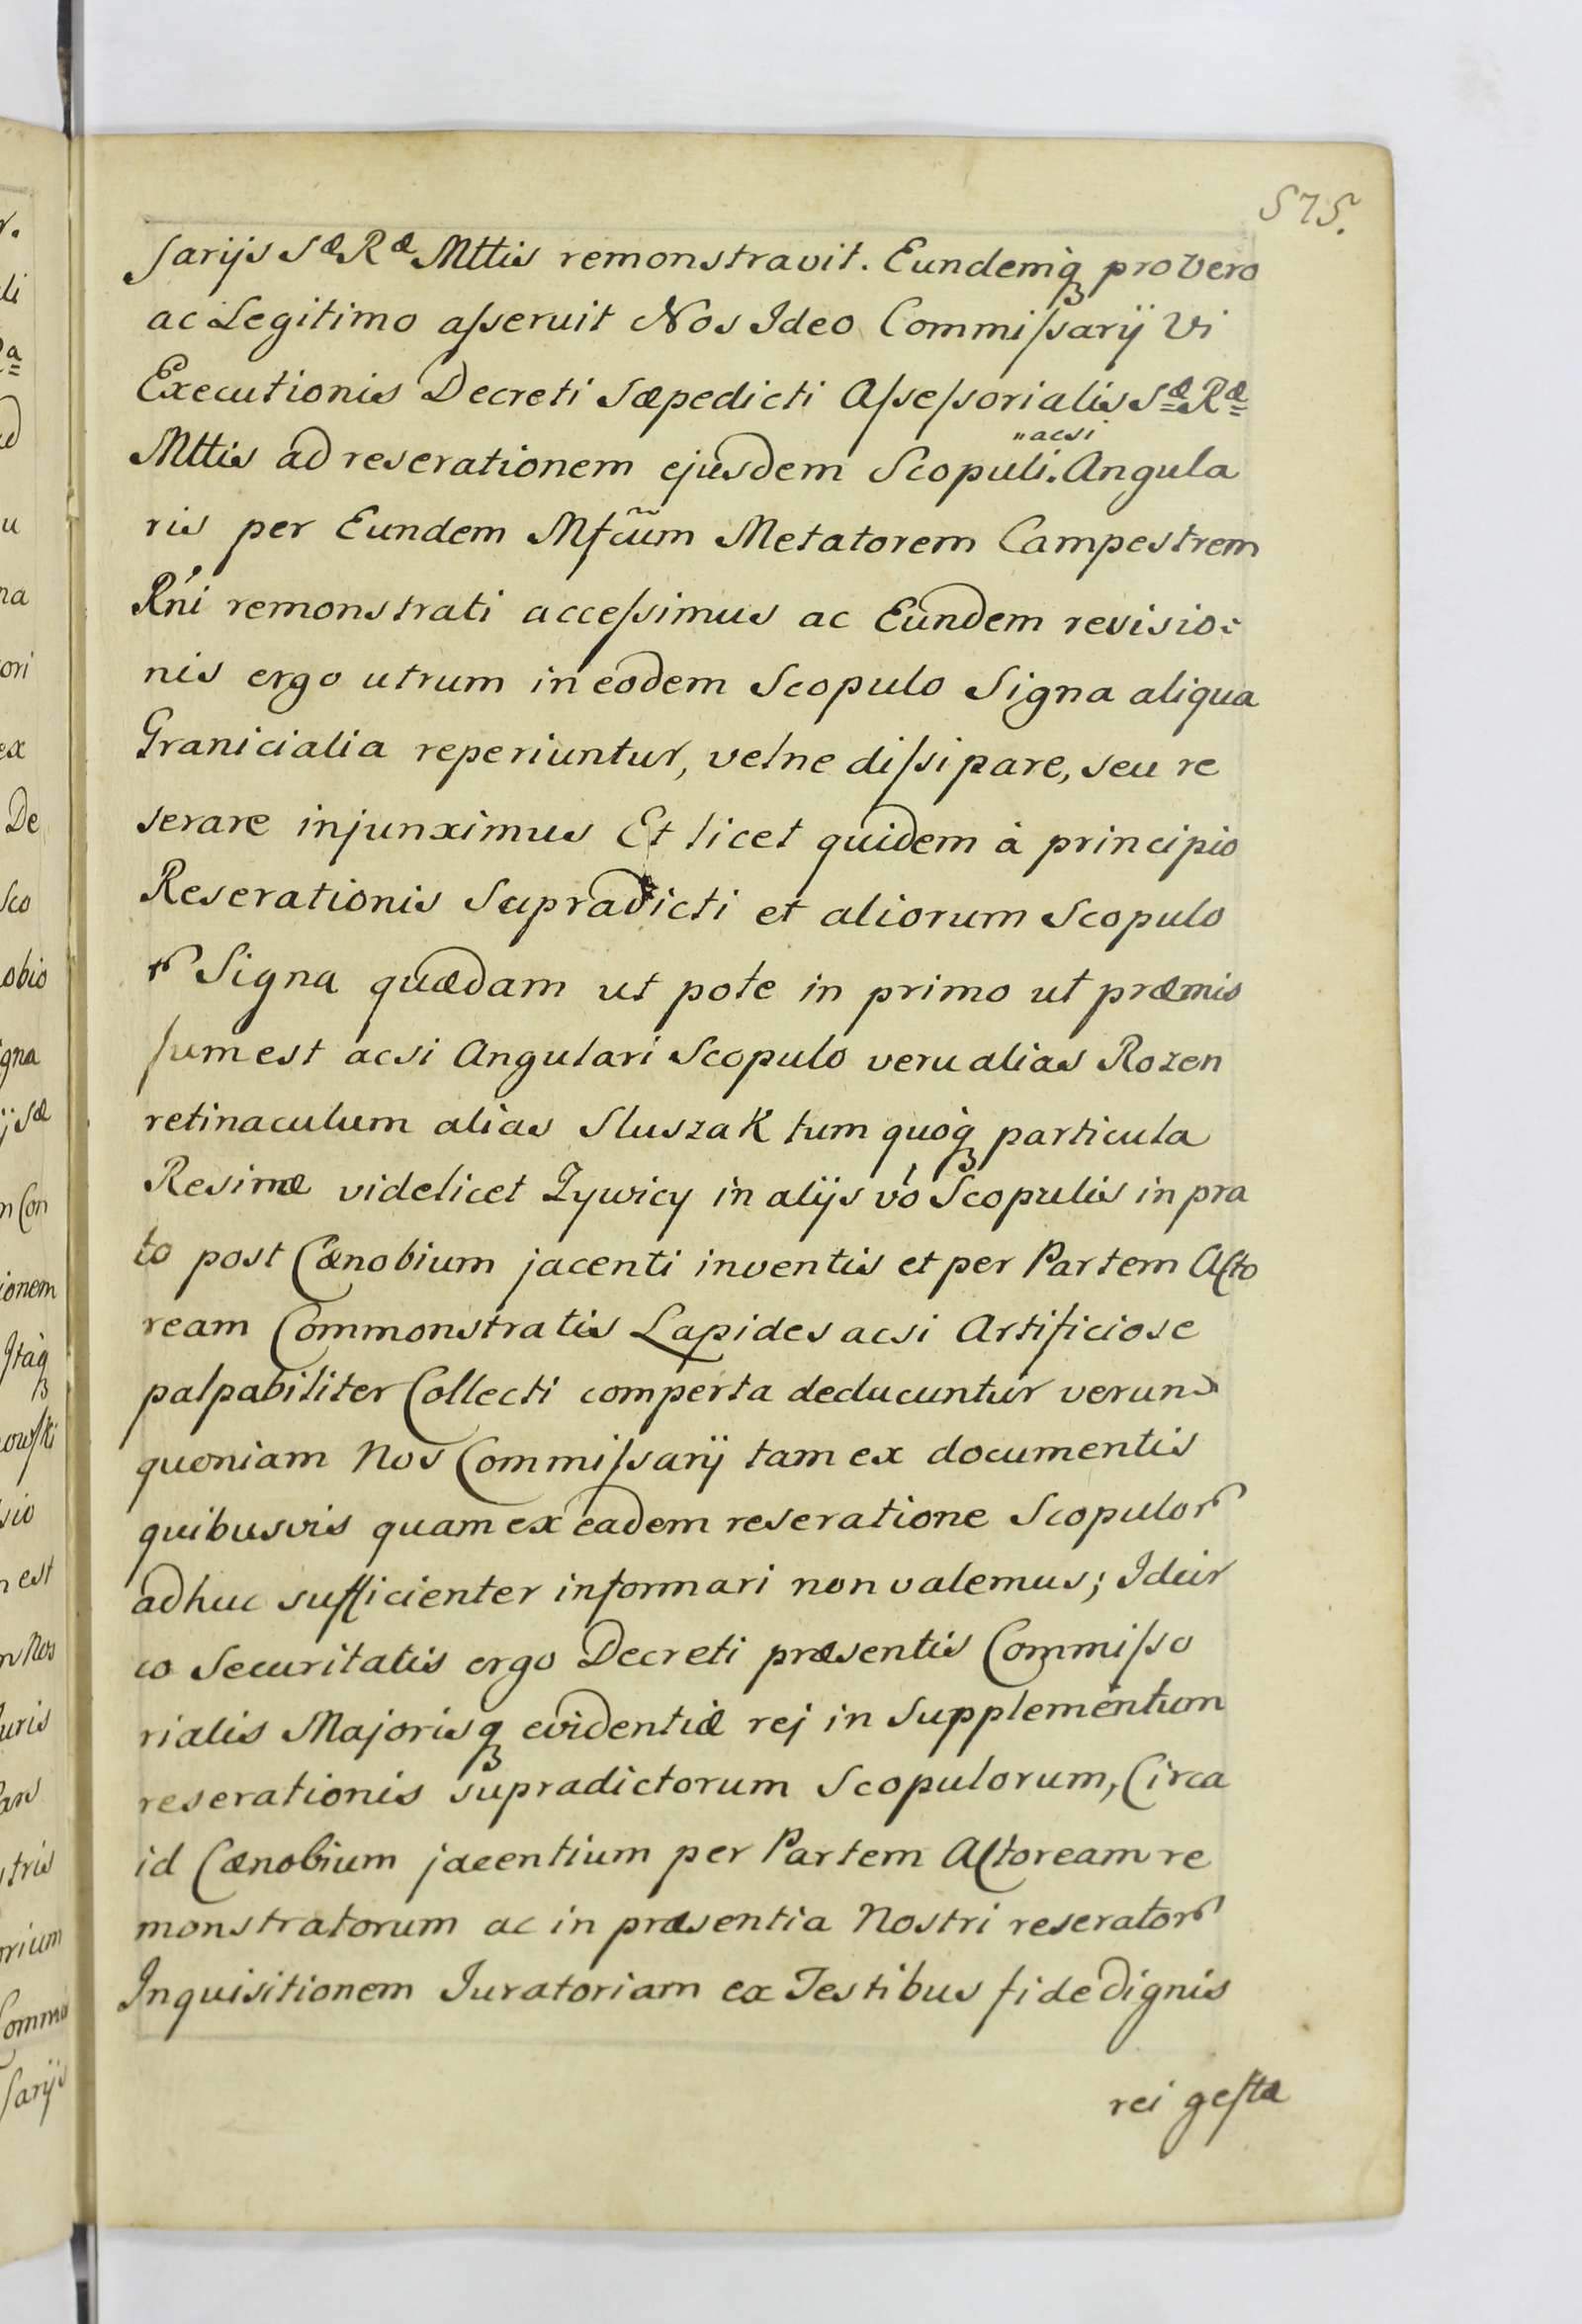 575.
sarijs Sæ Ræ Mttis remonstravit. Eundemq́ꝫ pro Vero
ac Legitimo aſseruit Nos Ideo Commiſsarij Vi
Executionis Decreti Sæpedicti Aſseſsorialis Sæ Ræ
„acsi
Mttis ad reserationem ejusdem Scopuli. Angula
ris per Eundem Mfcum̃ Metatorem Campestrem
Rńi remonstrati acceſsimus ac Eundem revisio:
nis ergo utrum in eodem Scopulo Signa aliqua
Granicialia reperiuntur, velne diſsipare, seu re
serare injunximus Et licet quidem à principio
Reserationis Supradicti et aliorum Scopulo
rꝭ Signa quædam ut pote in primo ut præmis
sum est acsi Angulari Scopulo veru alias Rozen
retinaculum alias Sluszak tum quoq́ꝫ particula
Resinæ videlicet Zywicy in alijs vó Scopulis in pra
to post Cænobium jacenti inventis et per Partem Acto
ream Commonstratis Lapides acsi Artificiose
palpabiliter Collecti comperta deducuntur verum
quoniam Nos Commiſsarij tam ex documentis
quibusvis quam ex eadem reseratione Scopulorꝭ
adhuc sufficienter informari non valemus; Idcir
co Securitatis ergo Decreti præsentis Commiſso
rialis Majorisqꝫ evidentiæ rej in Supplementum
reserationis supradictorum Scopulorum, Circa
id Cænobium jacentium per Partem Actoream re
monstratorum ac in præsentia Nostri reseratorꝭ
Inquisitionem Juratoriam ex Testibus fide dignis
rei gestæ